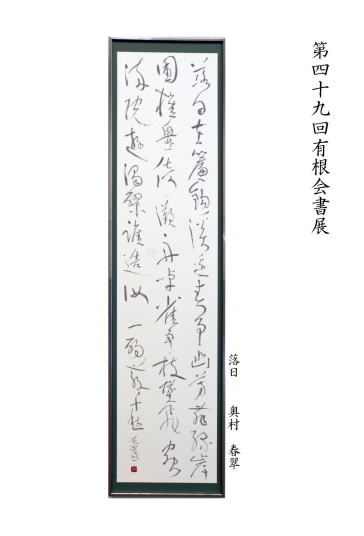 第四十九回有根会書展
落日 奥村 春翠
落日在簾鉤渓邊春事幽芳菲緣岸
圃樵爨倚灘舟啅雀争枝墜飛虫
満院遊濁醪誰造汝一酌散千愁